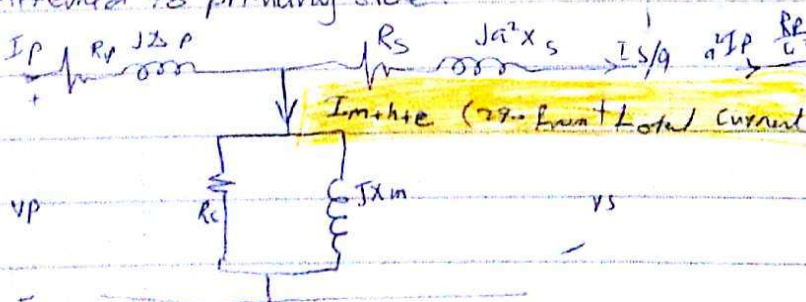 to primary side
Ip Rp JXp Rs Ja²Xs Is/a a²Ip Rp
Im+h+e ( from total current
Vp Rc JXm Vs